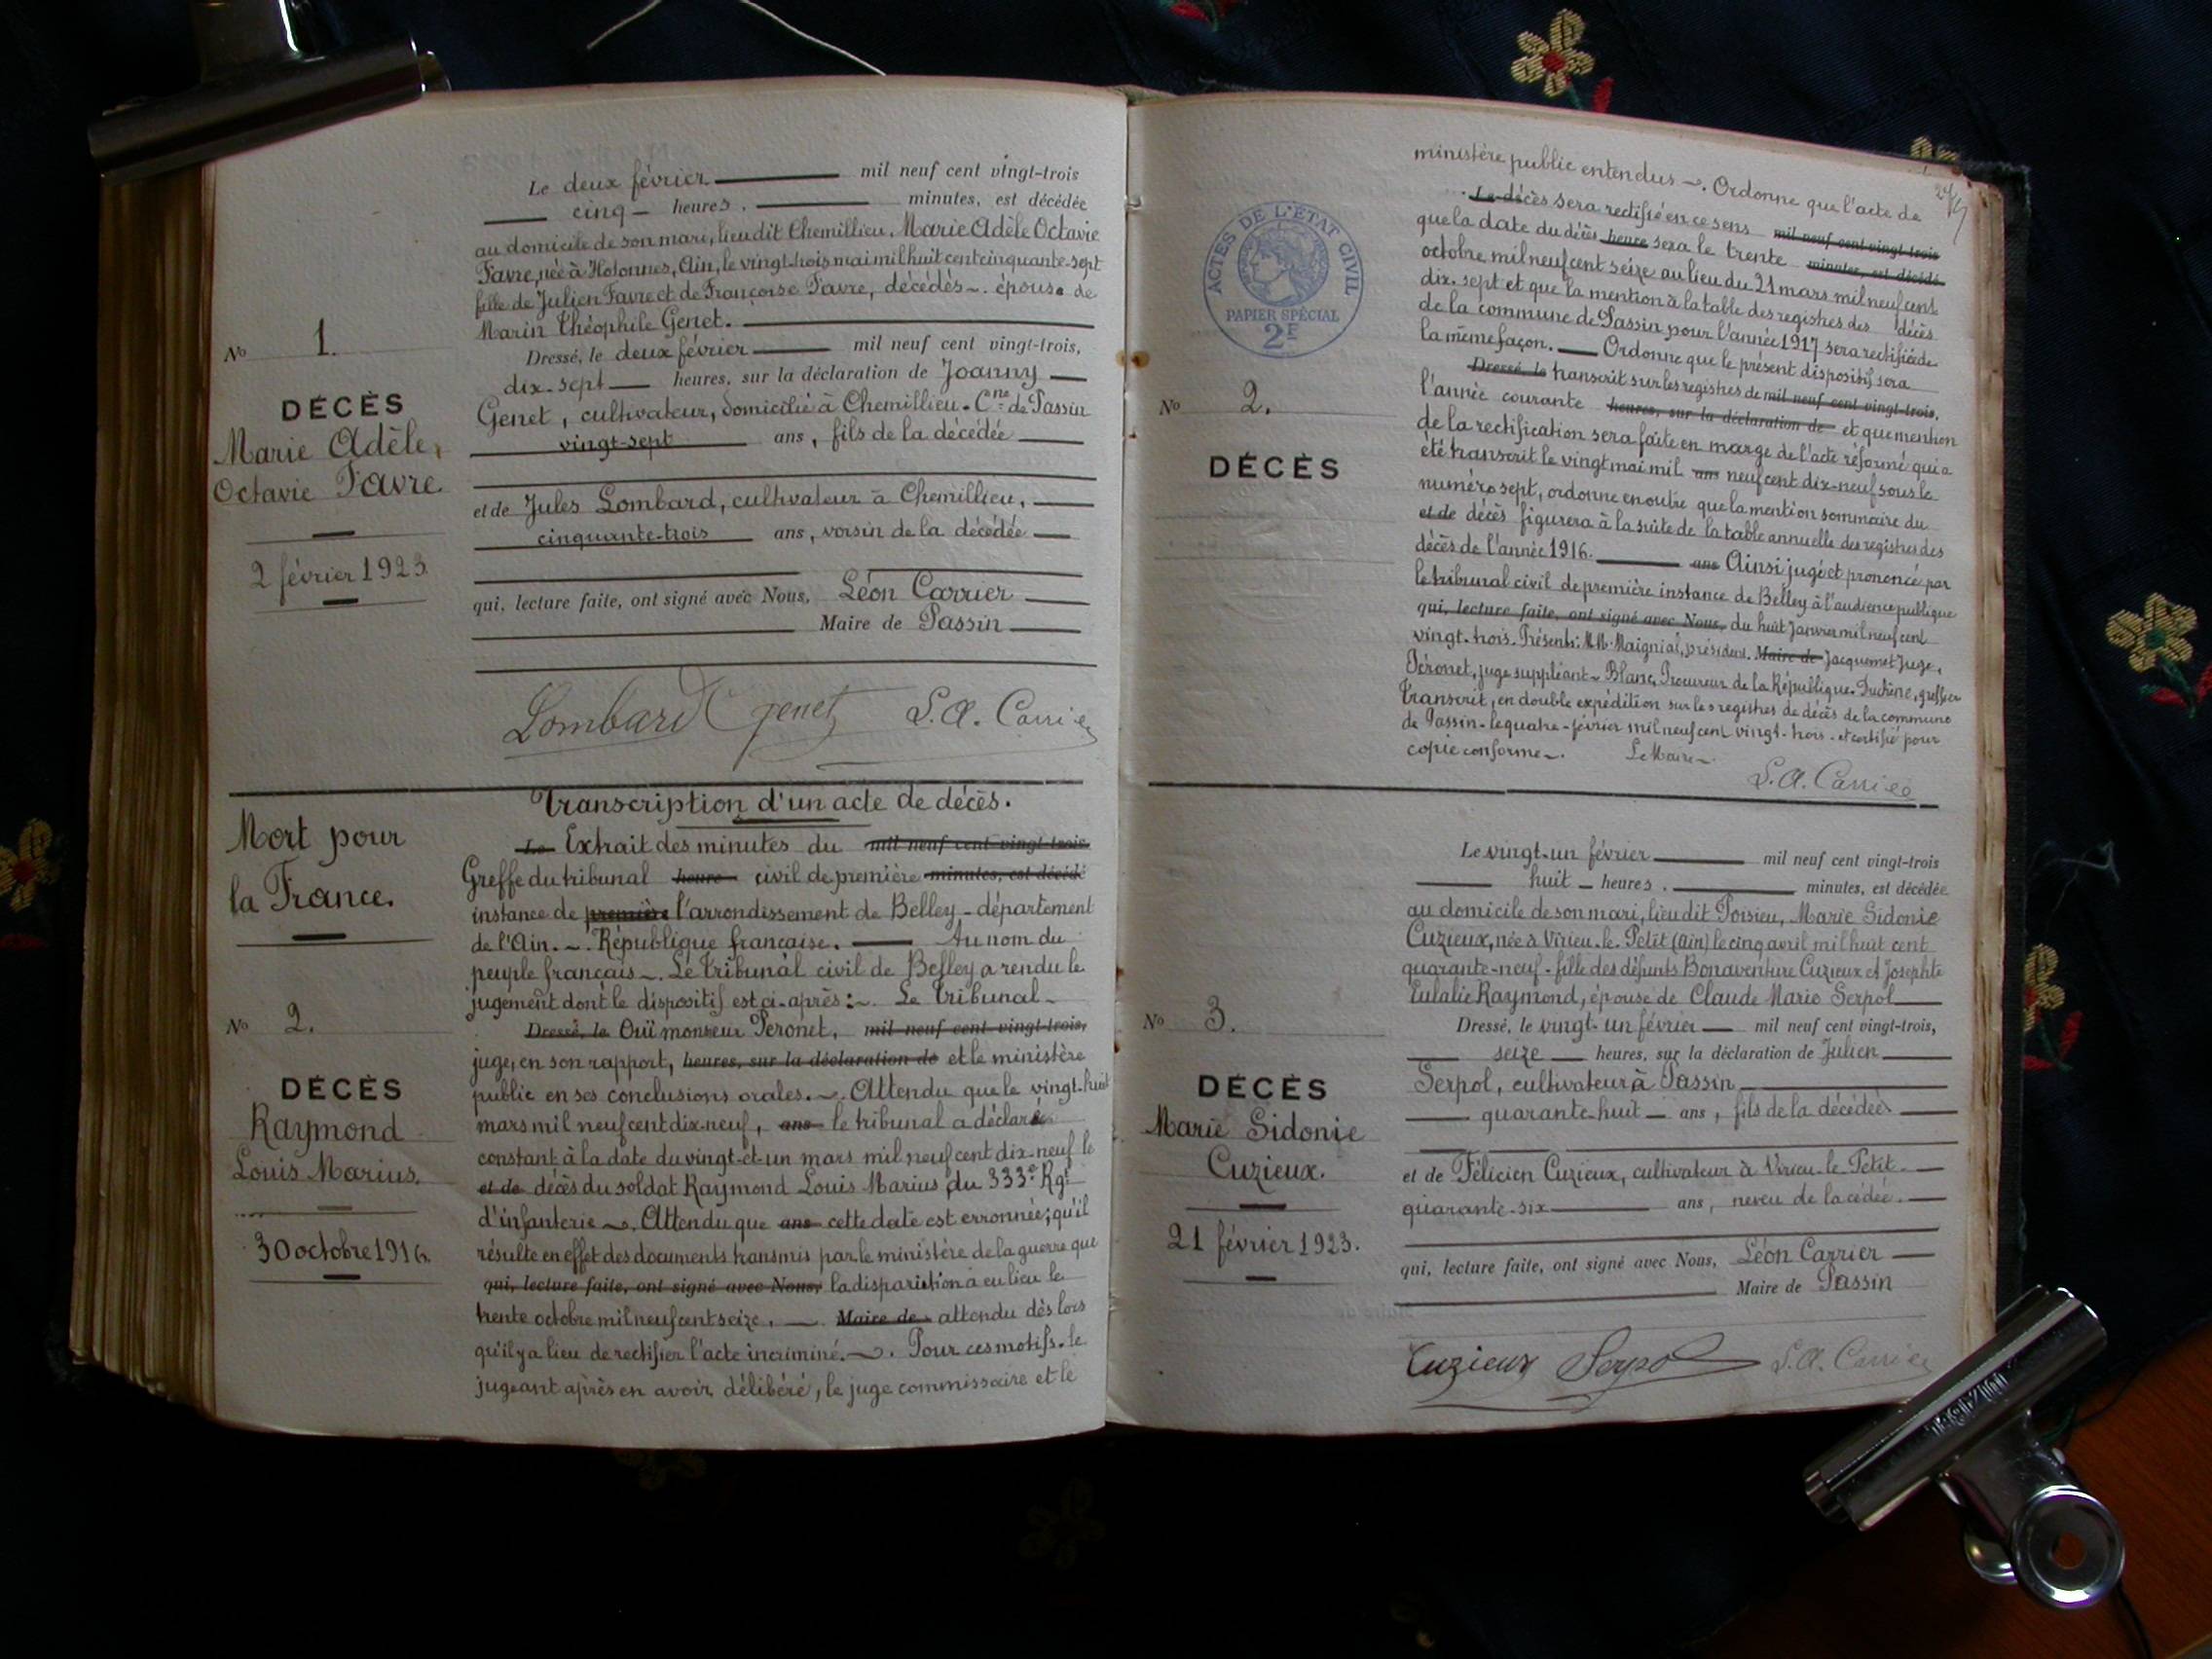 Le deux février mil neuf cent vingt-trois
cinq heures, minutes, est décédée
au domicile de son mari, lieu dit Chemillieu, Marie Adèle Octavie
Favre, née à Hotonnes, Ain, le vingt-trois mai mil huit cent cinquante-sept
fille de Julien Favre et de Françoise Favre, décédés ~. épouse de
Marin Théophile Genet.
No 1.
Dressé, le deux février mil neuf cent vingt-trois,
dix-sept heures, sur la déclaration de Joanny
DÉCÈS
Genet, cultivateur, domicilié à Chemillieu. Cne de Passin
Marie Adèle,
vingt-sept ans, fils de la décédée
Octavie Favre.
et de Jules Lombard, cultivateur à Chemillieu,
cinquante-trois ans, voisin de la décédée
2 février 1923
qui, lecture faite, ont signé avec Nous, Léon Carrier
Maire de Passin
Lombard Genet L.A. Carrier
Transcription d'un acte de décès.
Mort pour
la France.
Le Extrait des minutes du mil neuf cent vingt-trois
Greffe du tribunal heure civil de première minutes, est décédé
instance de première l'arrondissement de Belley - département
de l'Ain. ~. République française. Au nom du
peuple français ~. Le Tribunal civil de Belley a rendu le
jugement dont le dispositif est ci-après : ~. Le Tribunal ~
No 2.
Dressé, le Ouï monsieur Peronet, mil neuf cent vingt-trois,
juge, en son rapport, heures, sur la déclaration de et le ministère
DÉCÈS
public en ses conclusions orales. ~. Attendu que le vingt-huit
Raymond
mars mil neuf cent dix-neuf, ans le tribunal a déclaré
Louis Marius.
constant à la date du vingt-et-un mars mil neuf cent dix-neuf le
et de décès du soldat Raymond Louis Marius du 333e Rgt
d'infanterie ~. Attendu que ans cette date est erronnée; qu'il
30 octobre 1916.
résulte en effet des documents transmis par le ministère de la guerre que
qui, lecture faite, ont signé avec Nous, la disparition a eu lieu le
trente octobre mil neuf cent seize, Maire de attendu dès lors
qu'il y a lieu de rectifier l'acte incriminé. ~. Pour ces motifs. le
jugeant après en avoir délibéré, le juge commissaire et le
ministère public entendus ~. Ordonne que l'acte de
Le décès sera rectifié en ce sens mil neuf cent vingt-trois
que la date du décès heure sera le trente minutes, est décédé
octobre mil neuf cent seize au lieu du 21 mars mil neuf cent
dix-sept et que la mention à la table des registres des décès
de la commune de Passin pour l'année 1917 sera rectifiée de
la même façon. Ordonne que le présent dispositif sera
ACTES DE L'ÉTAT CIVIL
PAPIER SPÉCIAL
2F
Dressé, le transcrit sur les registres de mil neuf cent vingt-trois,
No 2.
l'année courante heures, sur la déclaration de et que mention
de la rectification sera faite en marge de l'acte réformé qui a
DÉCÈS
été transcrit le vingt mai mil ans neuf cent dix-neuf sous le
numéro sept, ordonne en outre que la mention sommaire du
et de décès figurera à la suite de la table annuelle des registres des
décès de l'année 1916. ans Ainsi jugé et prononcé par
le tribunal civil de première instance de Belley à l'audience publique
qui, lecture faite, ont signé avec Nous, du huit Janvier mil neuf cent
vingt-trois. Présents: M.M. Maignial, président. Maire de Jacquemet Juge,
Péronet, juge suppléant ~ Blanc, Procureur de la République. Duchêne, greffier
Transcrit, en double expédition sur les registres de décès de la commune
de Passin - le quatre - février mil neuf cent vingt-trois - et certifié pour
copie conforme ~. Le Maire ~
L.A. Carrier
Le vingt-un février mil neuf cent vingt-trois
huit heures, minutes, est décédée
au domicile de son mari, lieu dit Poisieu, Marie Sidonie
Cuzieux, née à Virieu-le-Petit (Ain) le cinq avril mil huit cent
quarante-neuf - fille des défunts Bonaventure Cuzieux et Josephte
Eulalie Raymond, épouse de Claude Marie Serpol
No 3.
Dressé, le vingt-un février mil neuf cent vingt-trois,
seize heures, sur la déclaration de Julien
DÉCÈS
Serpol, cultivateur à Passin
Marie Sidonie
quarante-huit ans, fils de la décédée
Cuzieux.
et de Félicien Cuzieux, cultivateur à Virieu-le-Petit
quarante-six ans, neveu de la cédée.
21 février 1923.
qui, lecture faite, ont signé avec Nous, Léon Carrier
Maire de Passin
Cuzieux Serpol L.A. Carrier